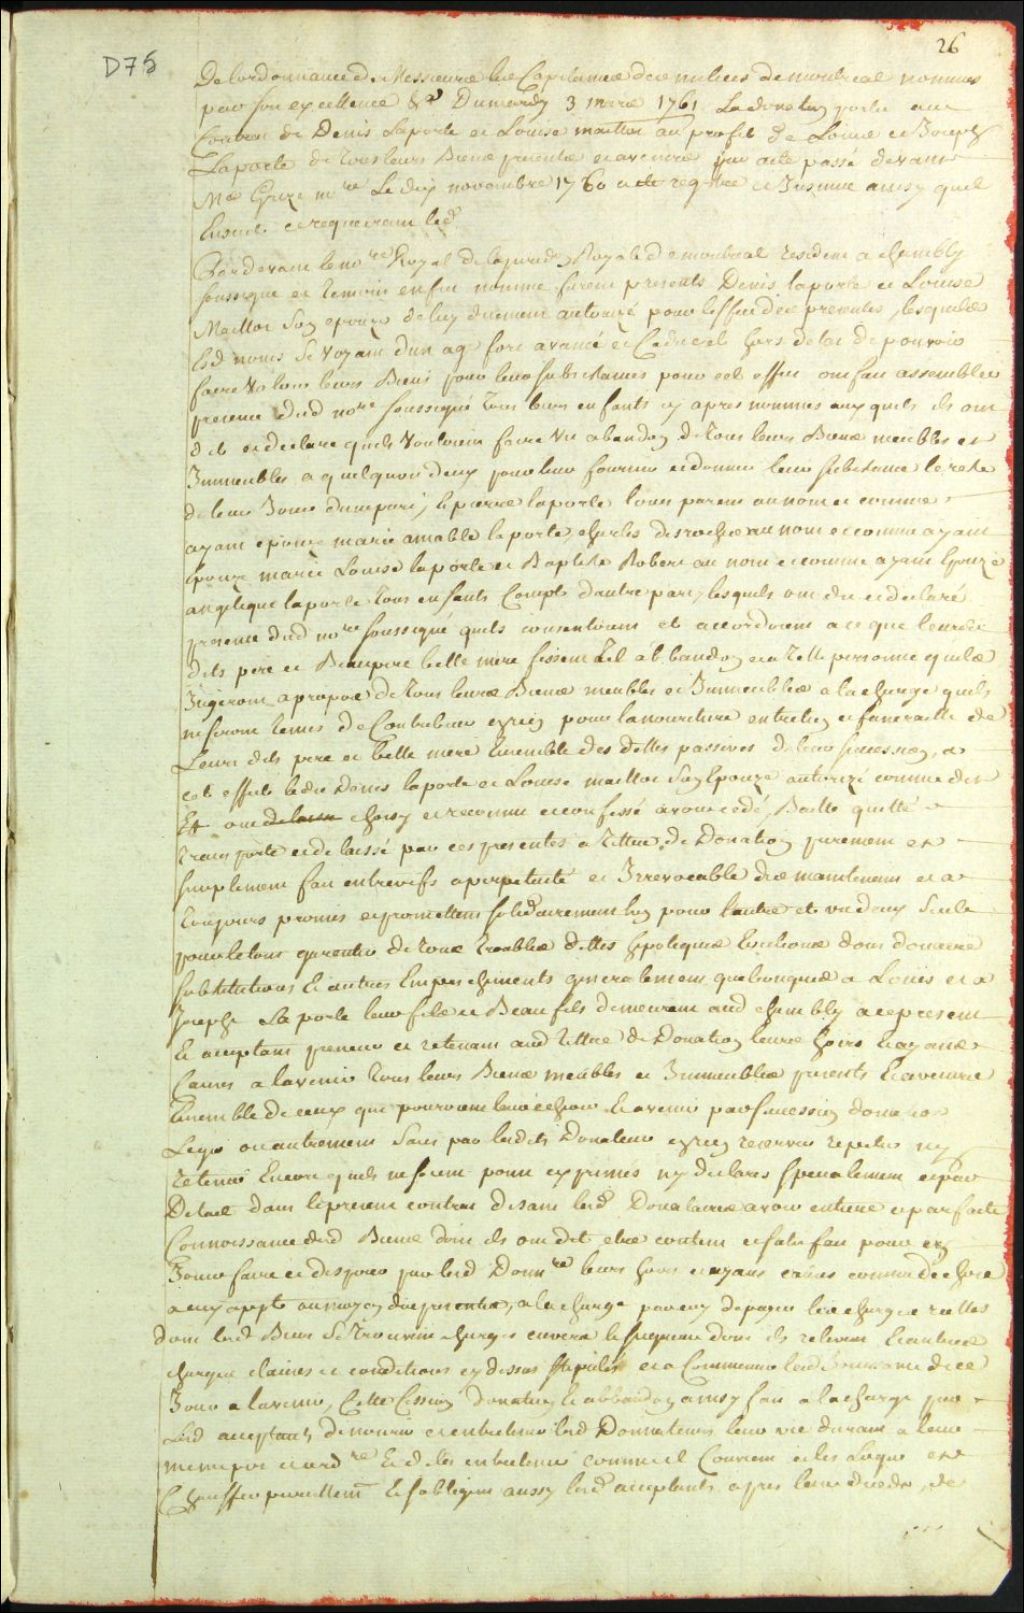 26
D75
De lordonnance de Messieurs les Capitaines des milices de montreal nommes
par son excellence &a Du mardy 3 mars 1761 La donation portée au
Contrat de Denis Laporte et Louise maillot au profit de Louis et Joseph
Laporte de tous leurs Biens presents et avenir par acte passé devant
Me Grize nre Le dix novembre 1760 a été reg-tree et Insinuée ainsy quil
Ensuit ce requerant led
Pardevant le nore Royal de la jurisdn Royale de montreal resident a chambly
soussigné et temoins enfin nommé furent presents Denis laporte et Louise
Maillot son epouze de luy duement autorizé pour leffet des presentes, lesquels
esd noms se voyant dun age fort avancé et Caducs et hors detat de pouvoir
faire valoir leurs Biens pour leur subsistances pour cet effet ont fait assembler
presence dud nore soussigné tous leurs enfants cy apres nommés auxquels ils ont
dit et declaré quils vouloient faire un abandon de tous leurs Biens meubles et
Immeubles a quelquun deux pour leur fournir et donner leur subsistance le reste
de leur Jours dune part, le pierre laporte Louis parent au nom et comme
ayant epouzé marie amable laporte, charles desrochers au nom et comme ayant
Epouzé marie Louise laporte et Baptiste Robert au nom et comme ayant Epouzé
angelique laporte tous enfants Compts dautre part, lesquels ont dit et declaré
presence dud nore soussigné quils consentoient et accordoient a ce que leurs
dits pere et Beaupere belle mere fissent tel abbandon et a telle personne quils
Jugeront apropos de tous leurs Biens meubles et Immeubles a la charge quils
ne seront tenus de Contribuer en rien pour la nouriture entretien et funeraille de
Leurs dits pere et belle mere Ensemble des dettes passives de leur succession, a
cet effet lesdits Denis laporte et Louise maillot son Epouze autorizé comme dit
Est ont de leur choisy et reconnu et confessé avoir cedé, Baillé quitté
transporté et delaissé par ces presentes a tittre de Donation purement et
simplement fait entrevifs a perpetuité et Irrevocable des maintenant et a
toujours promis et promettent solidairement lun pour lautre et un deux seul
pour le tout garentir de tous troubles dettes hypoteques Evictions dons douaires
substitutions Et autres Empeschements generalement quelconques a Louis et a
Joseph Laporte leur fils et Beau fils demeurant aud chambly a ce present
Et acceptant preneur et retenant aud tittre de Donation leurs hoirs Et ayans
Causes a lavenir tous leurs Biens meubles et Immeubles presents Et avenir
Ensemble de ceux qui pouroient leur echoir Et avenir par succession donation
Legs ou autrement sans par lesdits Donateurs en rien reserver repeter ny
retenir Encore quils ne soient point exprimés ny declarés specialement et par
Detail dans le present contrat disans lesd Donataires avoir entiere et parfaite
Connoissance desd Biens dont ils ont dit etre content et satisfait pour en
Jouir faire et disposer par lesd Donnres leurs hoirs et ayans causes comme de chose
a eux appte au moyen des presentes, a la charge par eux de payer les charges reelles
dont lesd Biens se trouvent chargés envers le seigneur dont ils relevent Et autres
charges clauses et conditions cy dessus stipulés et a Commencer lesd de ce
Jour a lavenir, Cette Cession donation Et abbandon ainsy fait a la charge par
Lesd acceptants de nourir et entretenir lesd Donnateurs leur vie durant a leur
meme pot et ord re Et de les entretenir comme il Convient et les Loger et
Chauffer pareillemt Et sobligent aussy lesd acceptants apres leur deceds, de